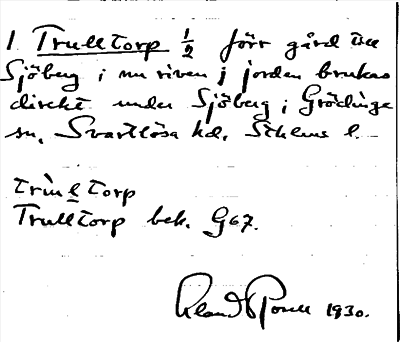 1 Trulltorp 1/2 förr gård till
Sjöberg; nu riven; jorden brukas
direkt under Sjöberg; Grödinge
sn, Svartlösa hd, Sthlms l.
Trulltorp bek. G67.
1930.